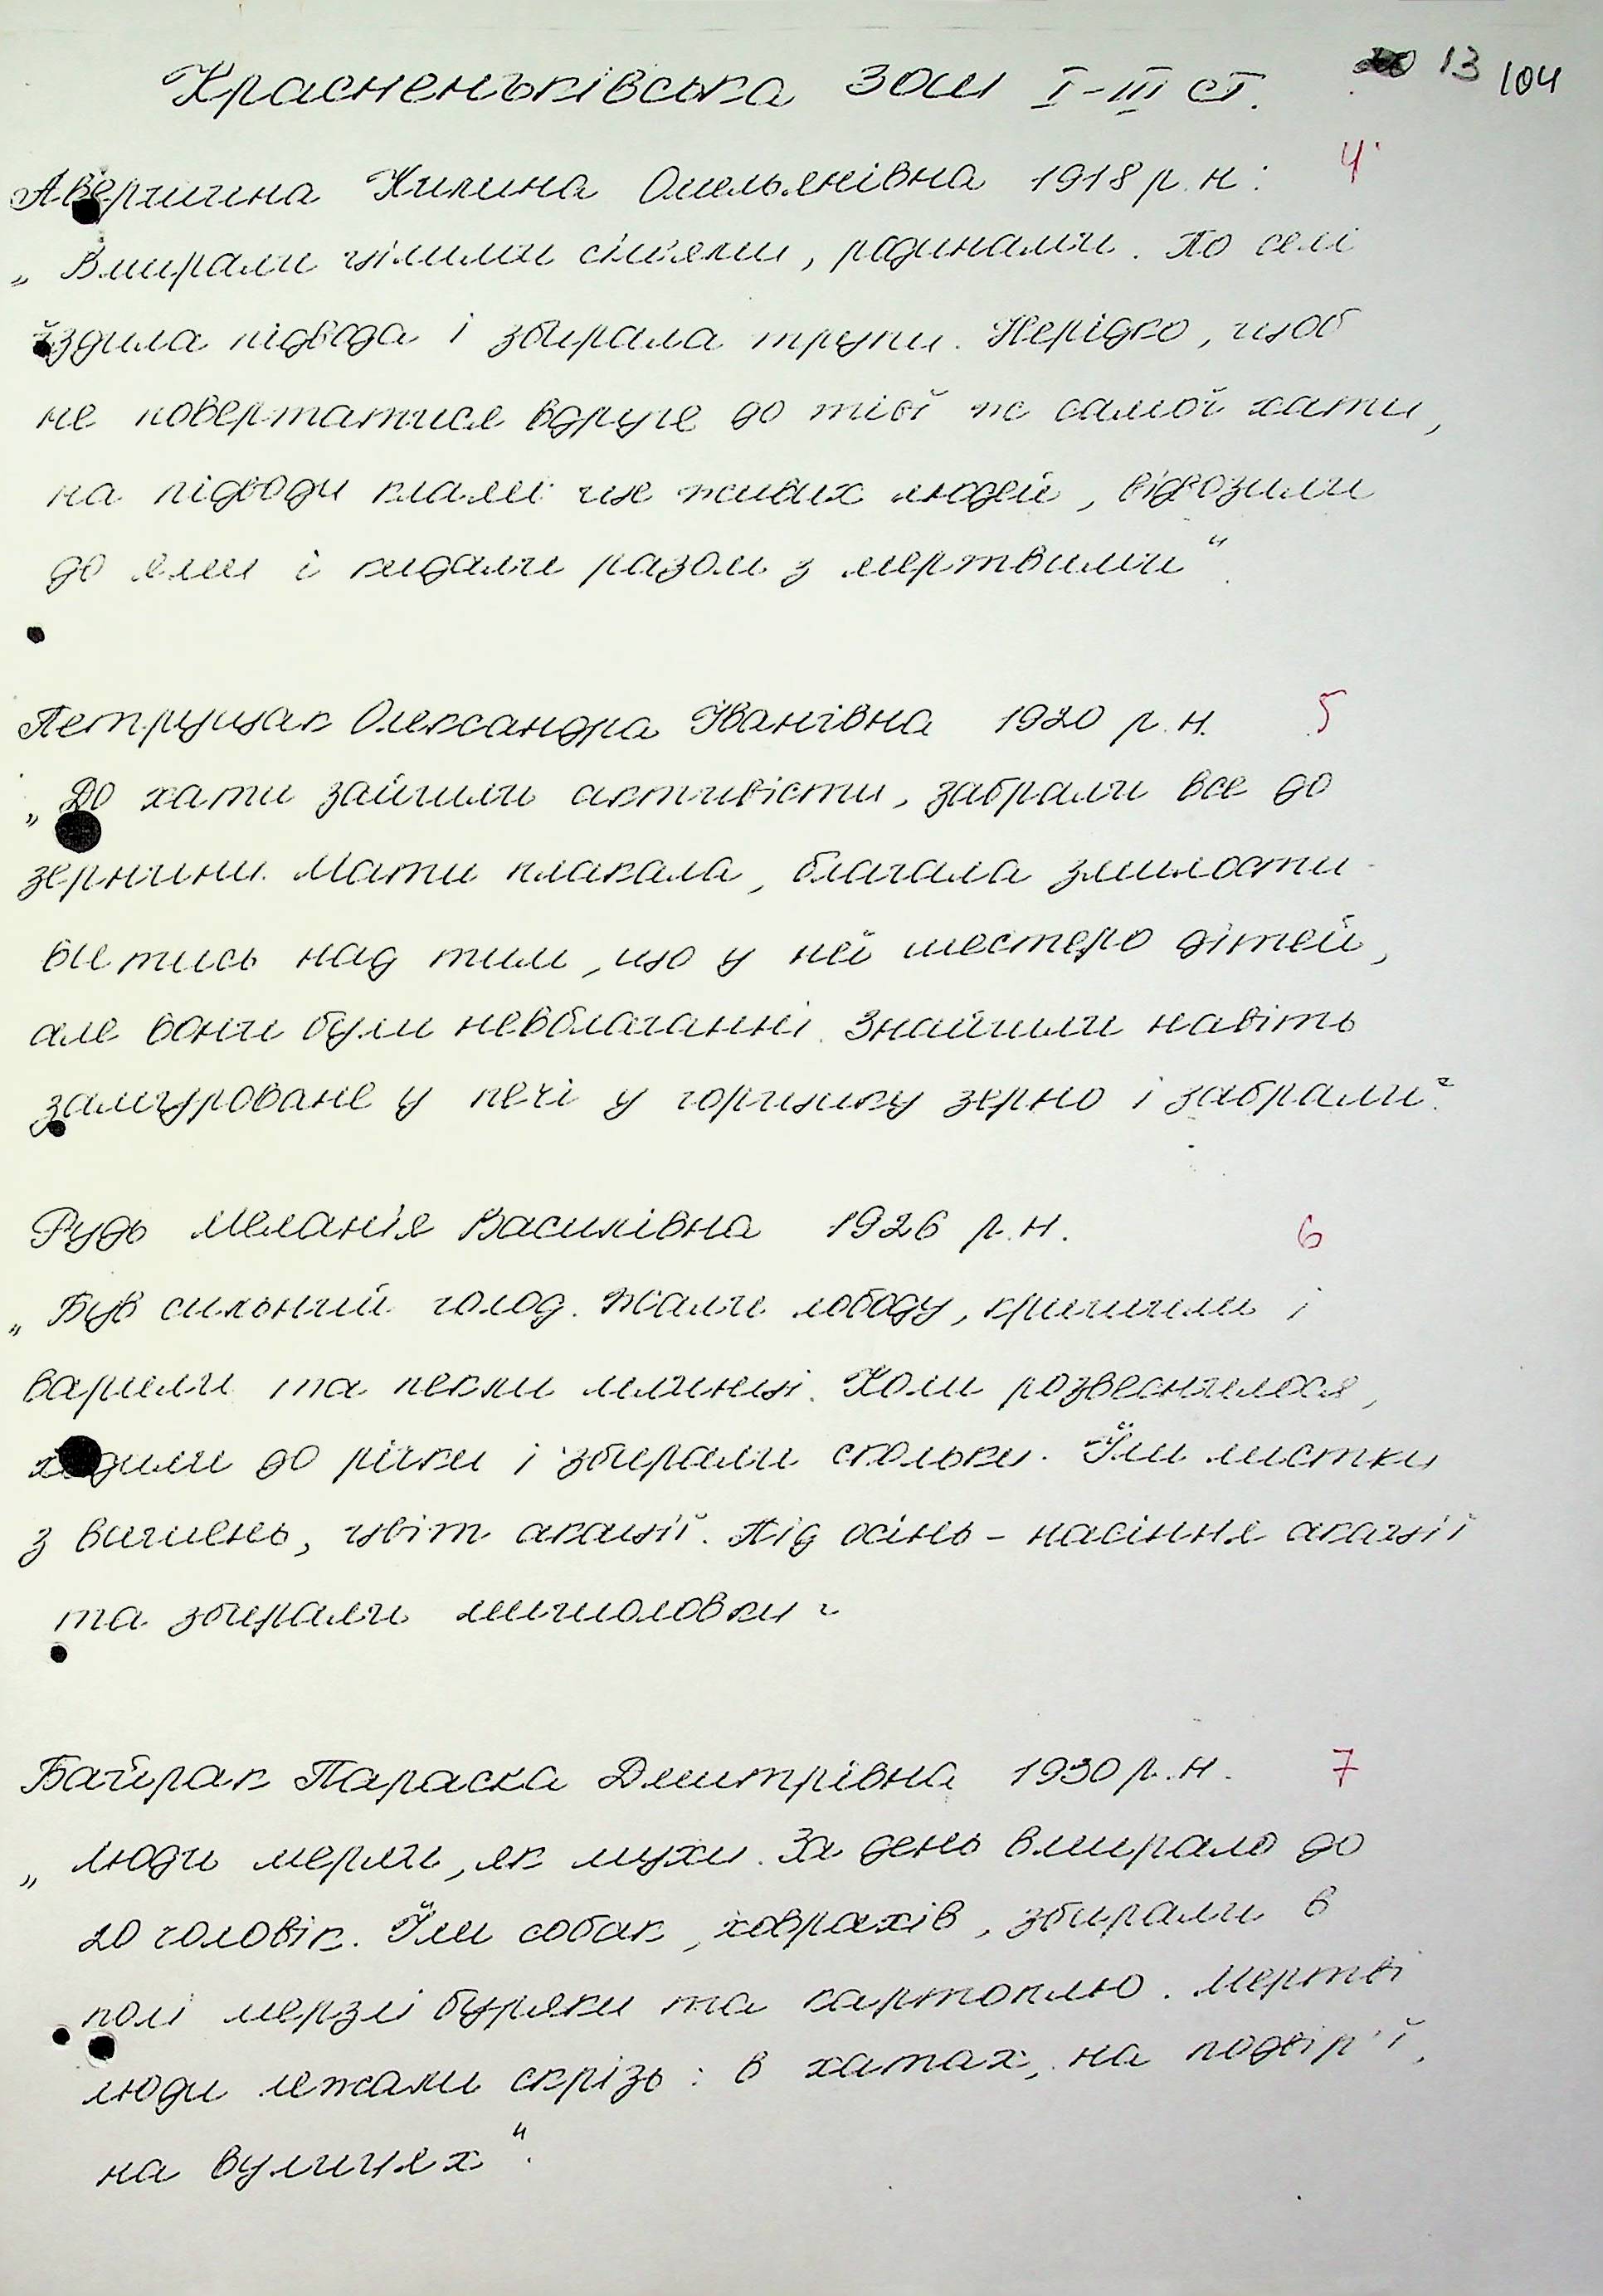 Красненьківська ЗОШ І-ІІІ ст. 13 104
Аверчина Килина Омелянівна 1918 р. н: 4
„Вмирали цілими сім'ями, родинами. По селі
їздила підвода і збирала трупи. Нерідко, щоб
не повертатися вдруге до тієї ж самої хати,
на підводи клали ще живих людей, відвозили
до ями і кидали разом з мертвими“.
Петрущак Олександра Іванівна 1920 р. н. 5
„До хати зайшли активісти, забрали все до
зернини. Мати плакала, благала змилости-
витись над тим, що у неї шестеро дітей,
але вони були невблаганні. Знайшли навіть
замуроване у печі у горщику зерно і забрали“.
Рудь Меланія Василівна 1926 р. н. 6
„Був сильний голод. Жали лободу, кришили і
варили та пекли млинці. Коли розвеснилося,
ходили до річки і збирали скольки. Їли листки
з вишень, цвіт акації. Під осінь - насіння акації
та збирали мишоловки“
Байрак Параска Дмитрівна 1930 р. н. 7
„Люди мерли, як мухи. За день вмирало до
20 чоловік. Їли собак, ховрахів, збирали в
полі мерзлі буряки та картоплю. Мертві
люди лежали скрізь: в хатах, на подвір'ї,
на вулицях“.